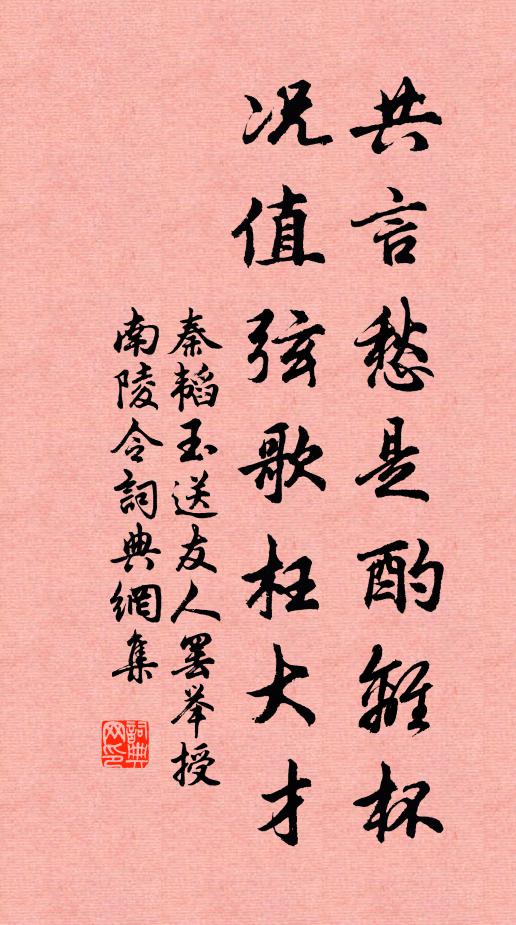 共言愁是酌離杯
况值弦歌枉大才
秦韬玉送友人罢举授
南陵令詞典網集
詞典网印